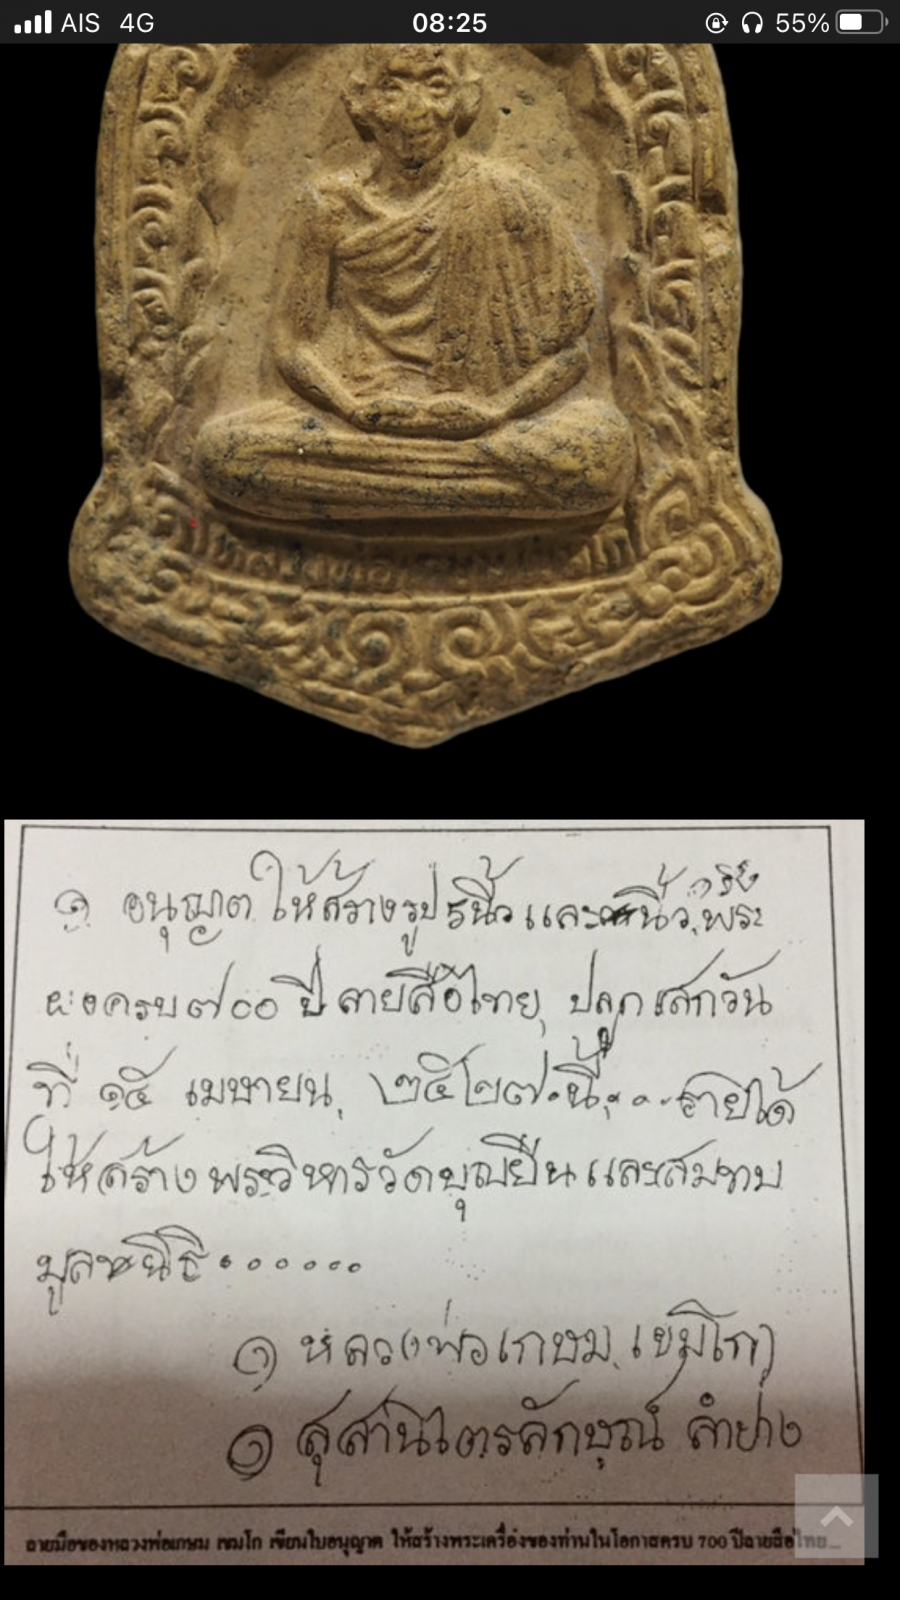 AIS 4G 08:25 55%
หลวงพ่อเกษม เขมโก
๑ อนุญาต ให้สร้างรูป นี้ว และ นี้ว, พระ
ผงครบ ๗๐๐ ปี ลายสือไทย, ปลุกเสกวัน
ที่ ๑๕ เมษายน, ๒๕๒๗ นี้, . . . รายได้
ให้สร้าง พระวิหารวัดบุญยืน และสมทบ
มูลนิธิ . . . . . .
๑ หลวงพ่อเกษม, เขมโก
๑ สุสานไตรลักษณ์ ลำปาง
ลายมือของหลวงพ่อเกษม เขมโก เขียนใบอนุญาต ให้สร้างพระเครื่องของท่านในโอกาสครบ 700 ปีลายสือไทย...